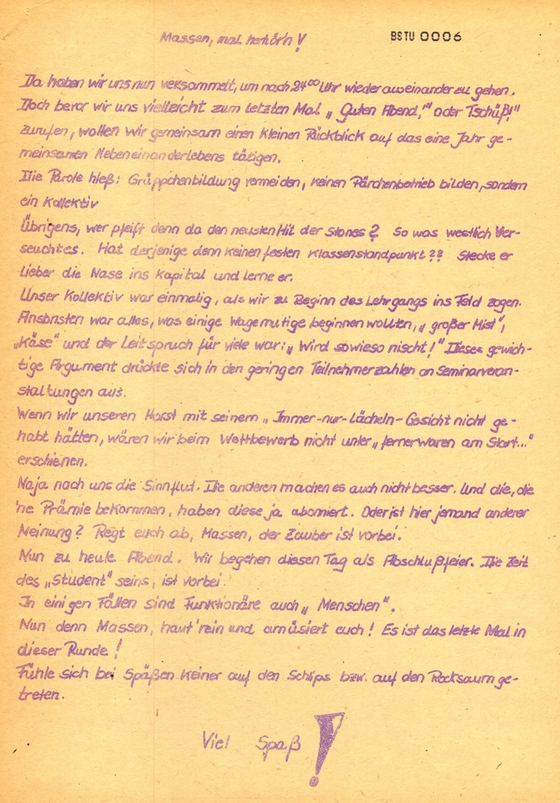 Massen, mal herhör'n!
BSTU 0006
Da haben wir uns nun versammelt, um nach 24⁰⁰ Uhr wieder auseinander zu gehen.
Doch bevor wir uns vielleicht zum letzten Mal „Guten Abend!" oder Tschüß!"
zurufen, wollen wir gemeinsam einen kleinen Rückblick auf das eine Jahr ge-
meinsamen Nebeneinanderlebens tätigen.
Die Parole hieß: Grüppchenbildung vermeiden, keinen Pärchenbetrieb bilden, sondern
ein Kollektiv
Übrigens, wer pfeift denn da den neusten Hit der Stones? So was westlich Ver-
seuchtes. Hat derjenige denn keinen festen Klassenstandpunkt?? Stecke er
lieber die Nase ins Kapital und lerne er.
Unser Kollektiv war einmalig, als wir zu Beginn des Lehrgangs ins Feld zogen.
Ansonsten war alles, was einige Wagemutige beginnen wollten, „großer Mist",
„Käse" und der Leitspruch für viele war: „Wird sowieso nischt!" Dieses gewich-
tige Argument drückte sich in den geringen Teilnehmerzahlen an Seminarveran-
staltungen aus.
Wenn wir unseren Horst mit seinem „Immer-nur-Lächeln-Gesicht nicht ge-
habt hätten, wären wir beim Wettbewerb nicht unter „ferner waren am Start..."
erschienen.
Naja nach uns die Sinnflut. Die anderen machen es auch nicht besser. Und die, die
'ne Prämie bekommen, haben diese ja abonniert. Oder ist hier jemand anderer
Meinung? Regt euch ab, Massen, der Zauber ist vorbei.
Nun zu heute Abend. Wir begehen diesen Tag als Abschlußfeier. Die Zeit
des „Student" seins, ist vorbei
In einigen Fällen sind Funktionäre auch „Menschen".
Nun denn Massen, haut'rein und amüsiert euch! Es ist das letzte Mal in
dieser Runde!
Fühle sich bei Späßen keiner auf den Schlips bzw. auf den Rocksaum ge-
treten.
Viel Spaß!